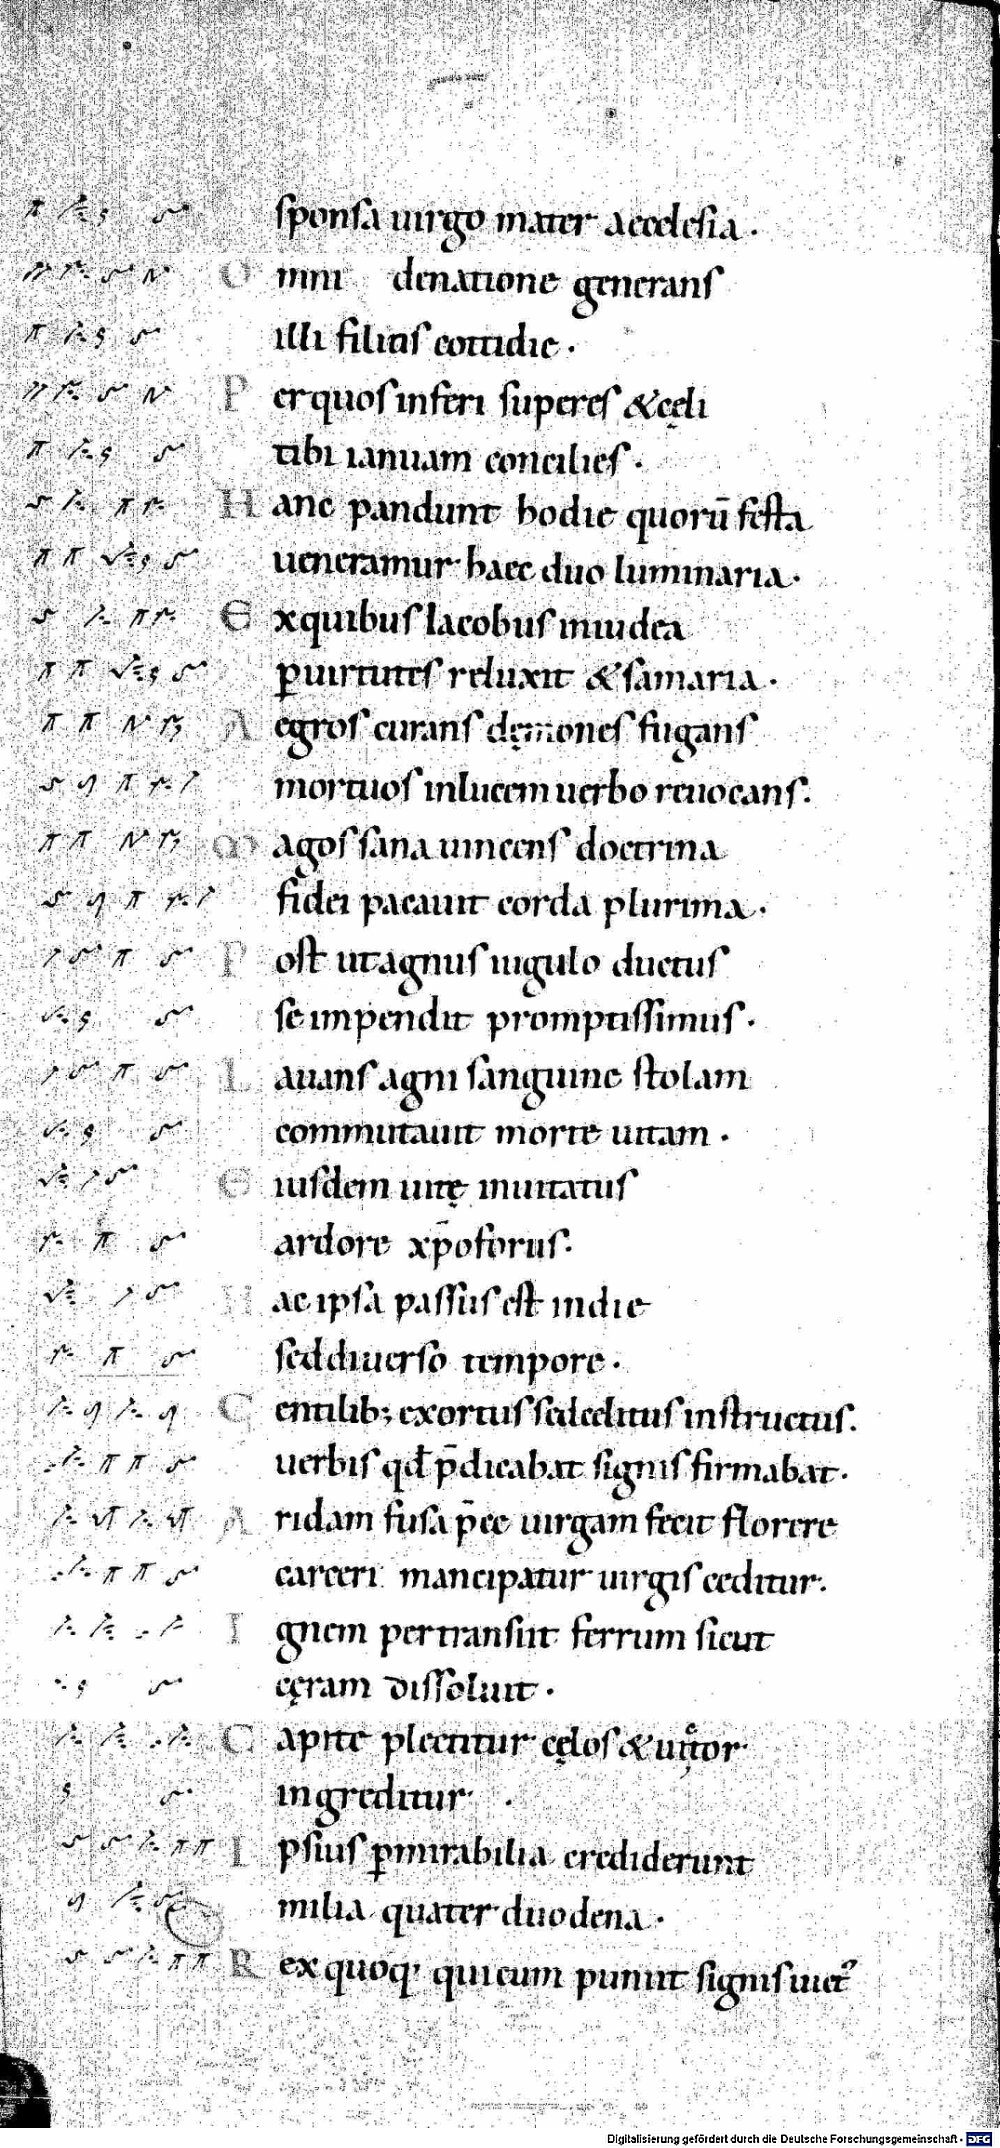 sponsa uirgo mater aecclesia.
Omni denatione generans
illi filius cottidie.
Perquos inferi superes & cęli
tibi ianuam concilies.
Hanc pandunt hodie quorū festa
ueneramur haec duo luminaria.
Exquibus Iacobus iniudea
ꝑuirtutes reluxit & samaria.
Aegros curans dęmones fugans
mortuos inlucem uerbo reuocans.
Magos sana uincens doctrina
fidei pacauit corda plurima.
Post utagnus iugulo ductus
se impendit promptissimus.
Lauans agni sanguine stolam
commutauit morte uitam.
Eiusdem uitę inuitatus
ardore xp̄oforus.
Hac ipsa passus est indie
seddiuerso tempore.
Gentilib; exortus sedceditus instructus.
uerbis qđ p̄dicabat signis firmabat.
Aridam fusa p̄ce uirgam fecit florere
carceri mancipatur uirgis ceditur.
Ignem pertransiit ferrum sicut
cęram dissoluit.
Capite plectitur cęlos & uictor
ingreditur.
Ipsius ꝑmirabilia crediderunt
milia quater duodena.
Rex quoq; quicum puniit signis uict᷒
Digitalisierung gefördert durch die Deutsche Forschungsgemeinschaft - DFG